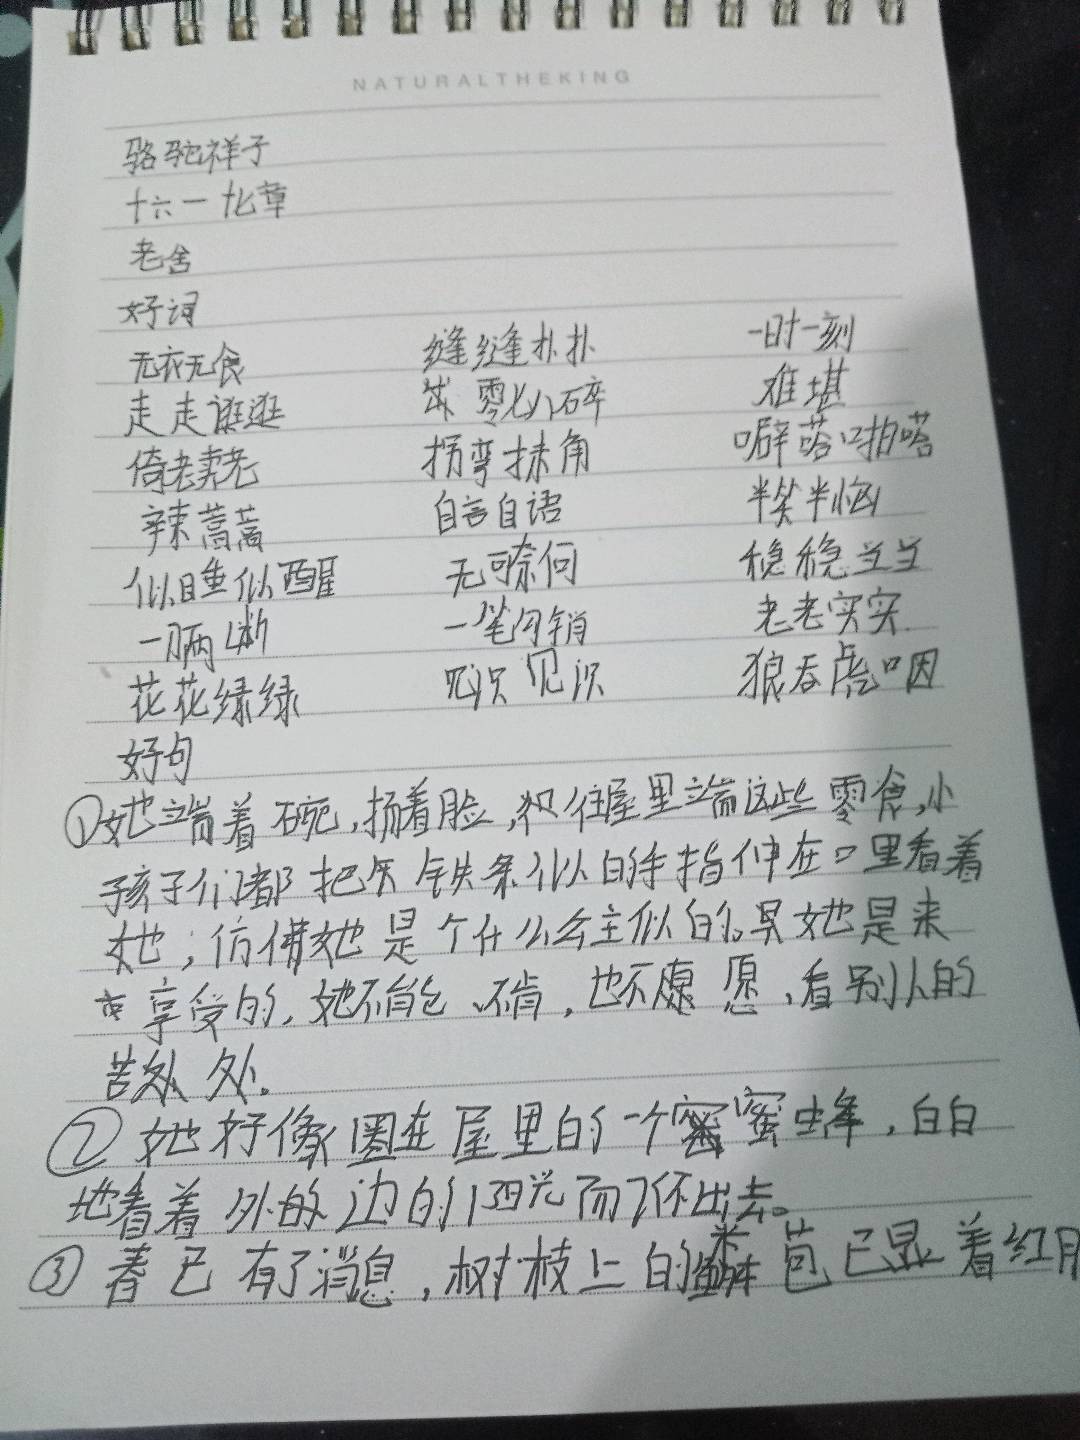 NATURALTHEKING
骆驼祥子
十六一十七章
老舍
好词
无衣无食 缝缝扑扑 一时一刻
走走逛逛 零七八碎 难堪
倚老卖老 拐弯抹角 噼嗒啪嗒
辣蒿蒿 自言自语 半笑半恼
似睡似醒 无可奈何 稳稳当当
一刀两断 一笔勾销 老老实实
花花绿绿 见识 狼吞虎咽
好句
①她端着碗,扬着脸,积往屋里端这些零食,小
孩子们都把铁条似的手指伸在口里看着
她;仿佛她是个什么公主似的。她是来
享受的,她不能、不肯,也不愿愿、看别人的
苦处处。
②她好像圈在屋里的一个蜜蜂,白白
地看着外边的阳光而飞不出去。
③春已有了消息,树枝上的鳞苞已显着红